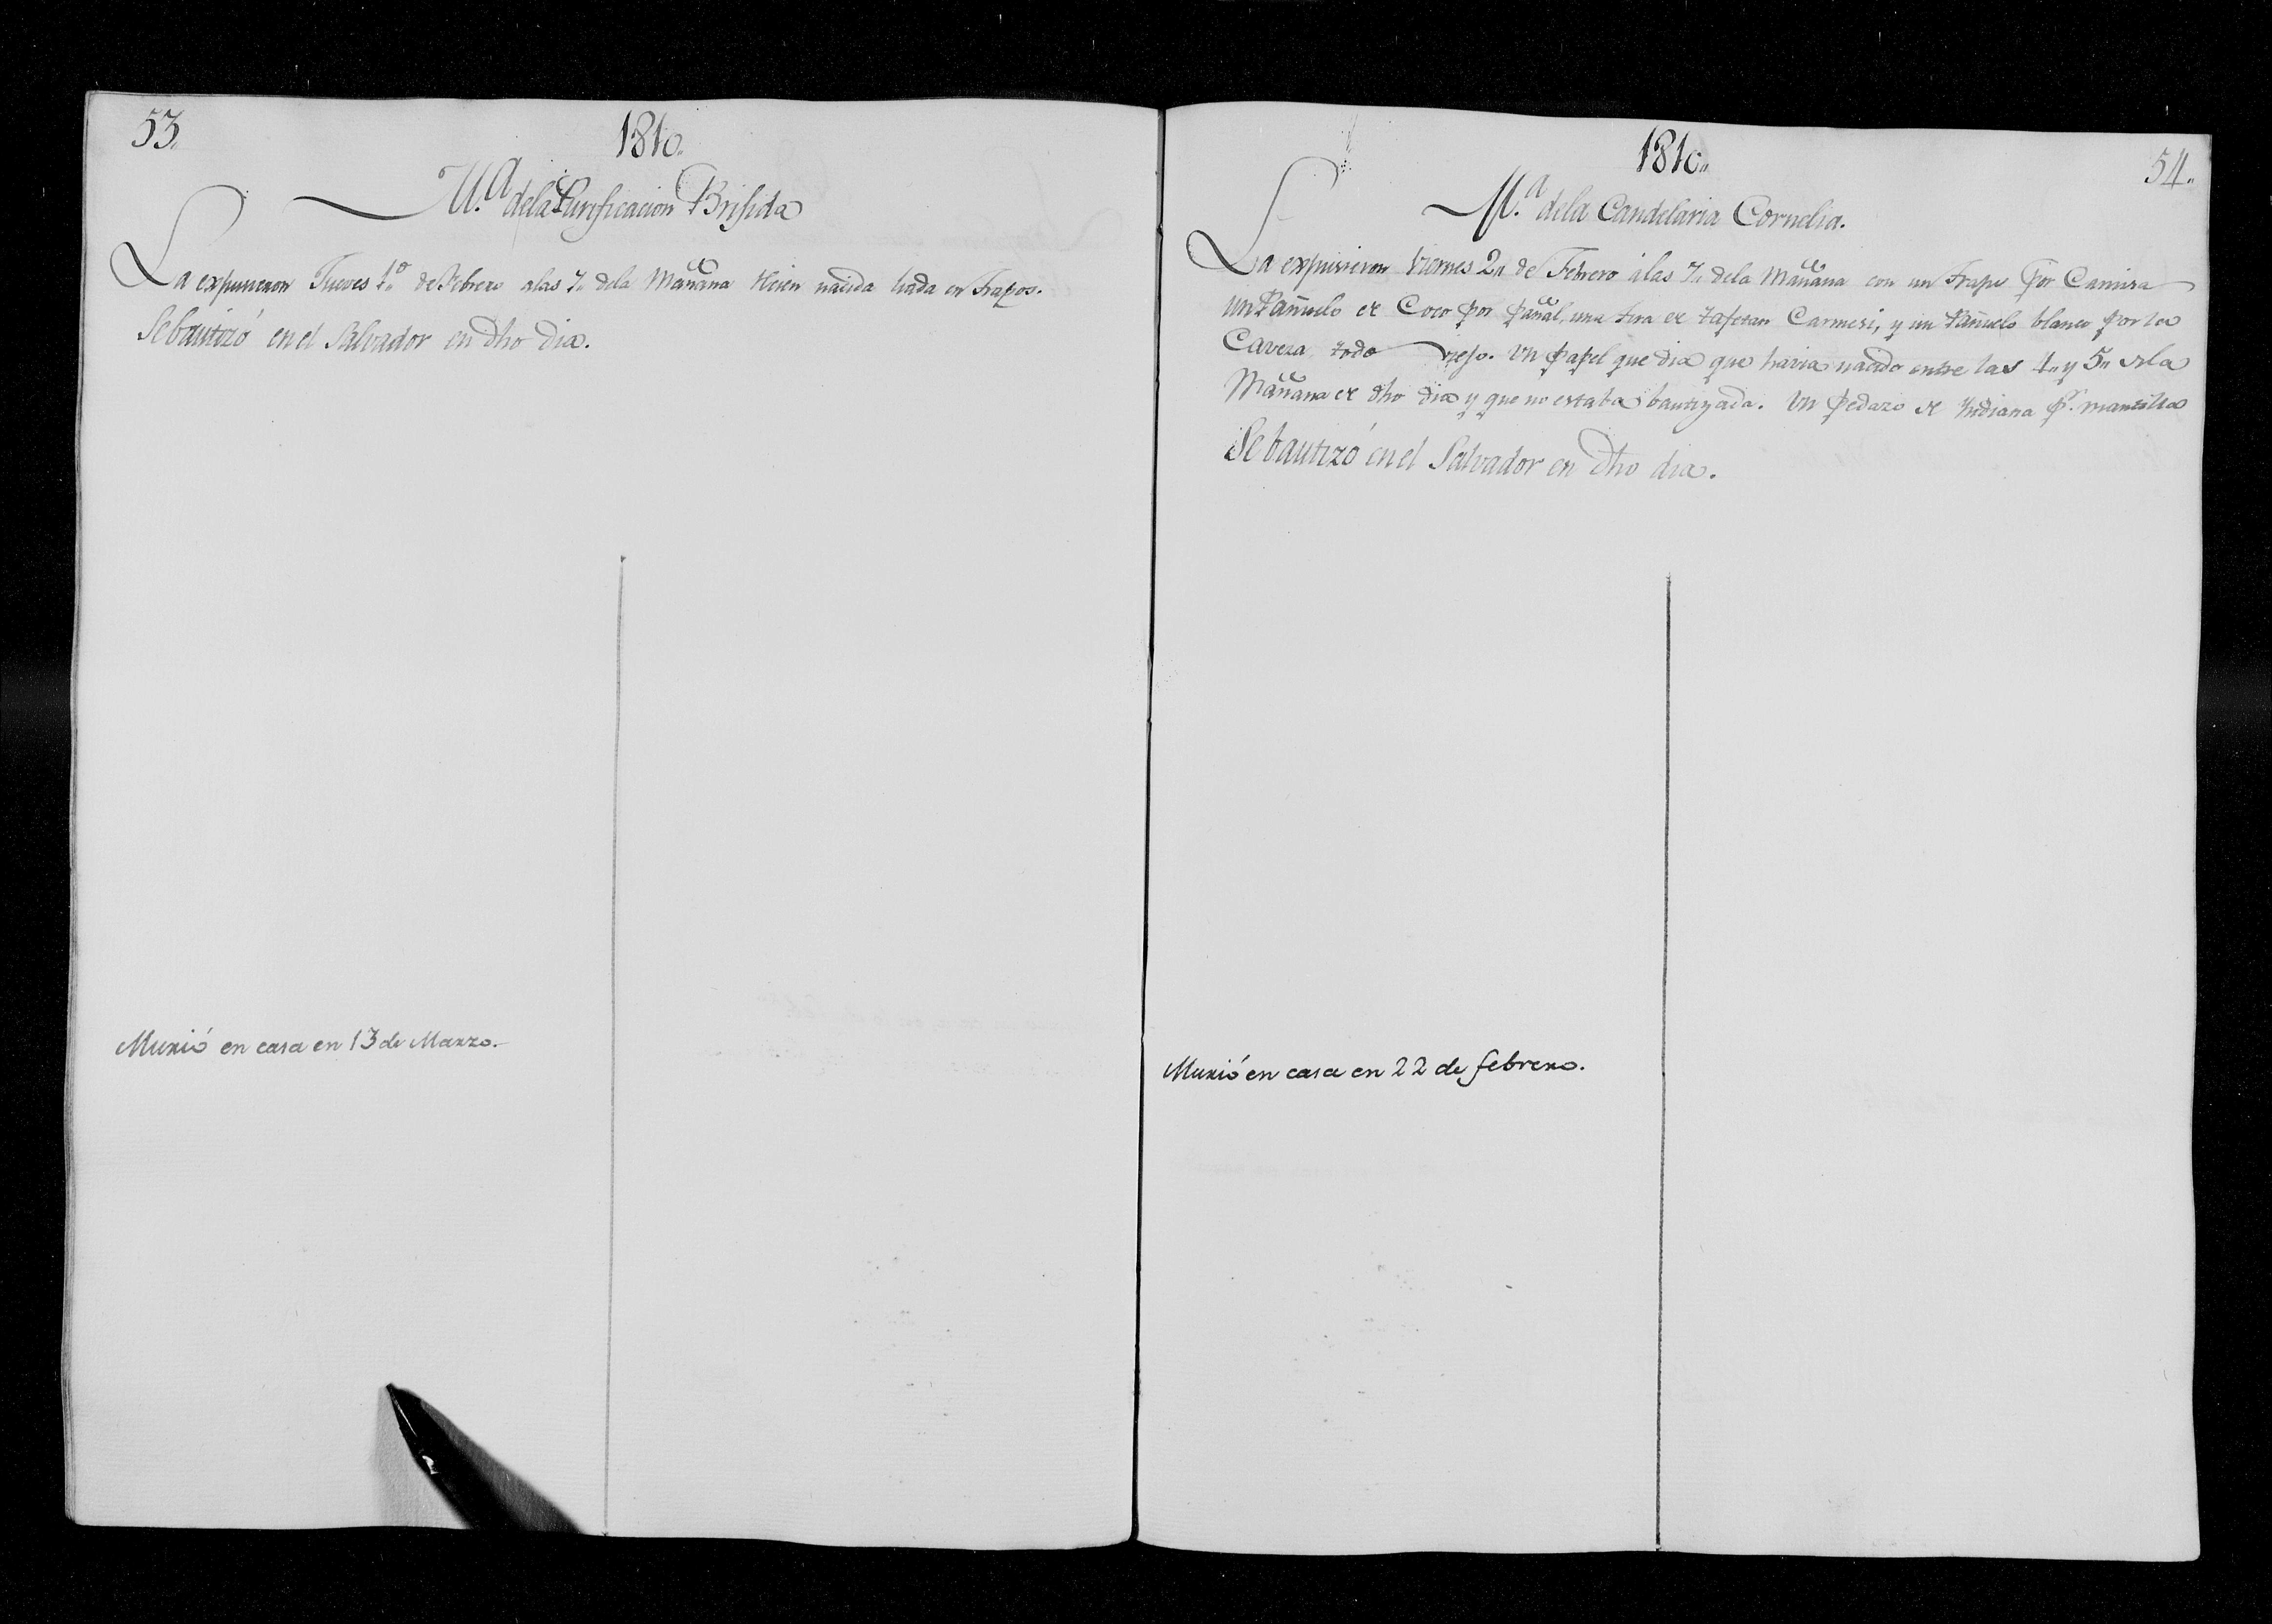 53.
1810.
M.ª dela Purificacion Brisida
La expusieron Jueves 1.º de Febrero alas 7. dela Mañana Recien nacida liada en Trapos.
Se bautizó en el Salvador en dho dia.
Murió en casa en 13 de Marzo.
1810.
54.
M.ª dela Candelaria Cornelia.
La expusieron Viernes 2,, de Febrero á las 7,, dela Mañana con un trapo por Camisa
un Pañuelo de Coco por pañal, una tira de tafetan Carmesi, y un Pañuelo blanco por la
Caveza todo viejo. Un papel que dia que havia nacido entre las 4,, y 5,, dela
Mañana de dho dia y que no estaba bautizada. Un pedazo de Indiana p.r mantilla
Se bautizó en el Salvador en dho dia.
Murió en casa en 22 de febrero.